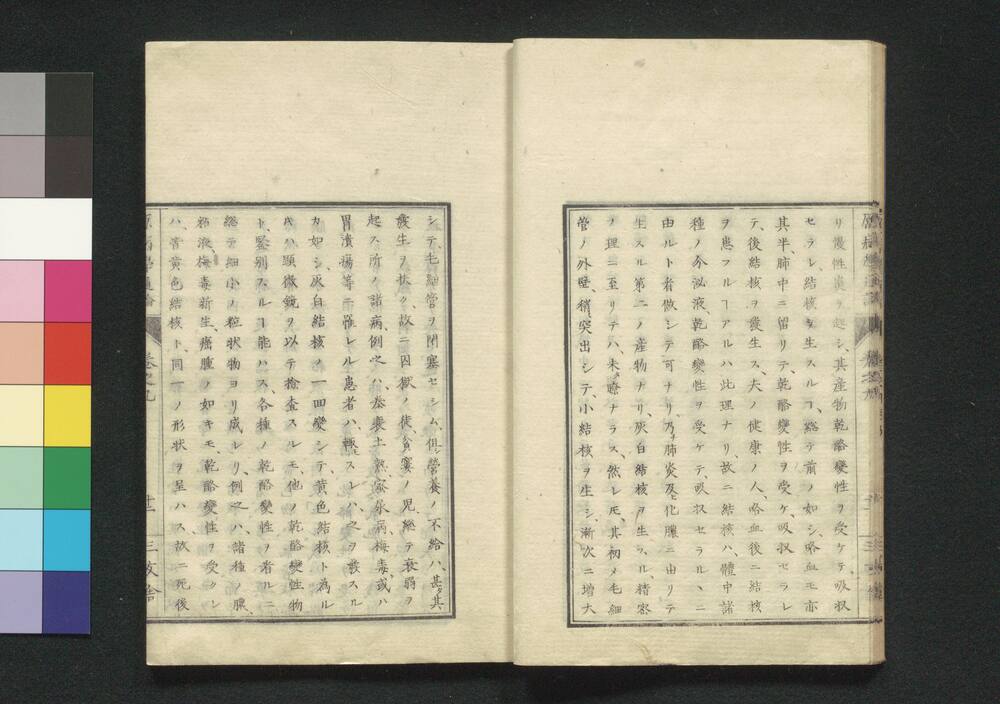 リ慢性炎ヲ起シ、其産物乾酪變性ヲ受ケテ吸收
セラレ、結核ヲ生スルヿ、略テ前ノ如シ、咯血モ亦
其半、肺中ニ留リテ、乾酪變性ヲ受ケ、吸収セラレ
テ、後結核ヲ發生ス、夫ノ健康ノ人、咯血後ニ結核
ヲ患フルヿアルハ此理ナリ、故ニ結核ハ、體中諸
種ノ分泌液、乾酪變性ヲ受ケテ、吸収セラルヽニ
由ルト者做シテ可ナリ、乃チ肺炎及ヒ化膿ニ由リテ
生スル第二ノ産物ナリ、灰白結核ヲ生スル、精密
ノ理ニ至リテハ、未タ瞭ナラス、然レ𪜈、其初メ毛細
管ノ外壁、稍突出シテ、小結核ヲ生シ、漸次ニ増大
シテ、毛細管ヲ閉塞セシム、但シ營養ノ不給ハ、甚タ其
發生ヲ扶ク、故ニ囚獄ノ徒、貧窶ノ児、總テ衰弱ヲ
起ス所ノ諸病、例之ハ、蒸衝土熱、蜜尿病、梅毒、或ハ
胃潰瘍等ニ罹レル患者ハ、輙スレハ、之ヲ發スル
カ如シ、灰白結核ノ一回變シテ、黄色結核ト為ル
𪜈ハ、顕微鏡ヲ以テ撿査スルモ、他ノ乾酪變性物
ト、鑒別スルヿ能ハス、各種ノ乾酪變性ノ者ルニ
總テ細小ノ粒状物ヨリ成レリ、例之ハ、諸種ノ膿、
粘液、梅毒新生、癌腫ノ如キモ、乾酪變性ヲ受クレ
ハ、昔黄色結核ト、同一ノ形状ヲ呈ハス、故ニ死後
原病學通論 巻之九 十二 三友舎